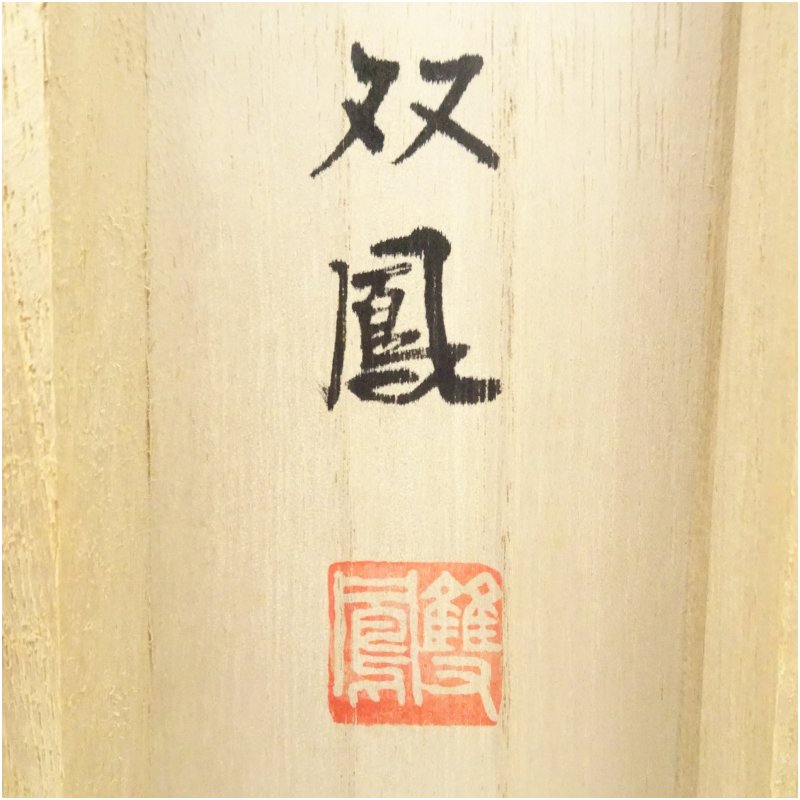 双鳳
雙鳳